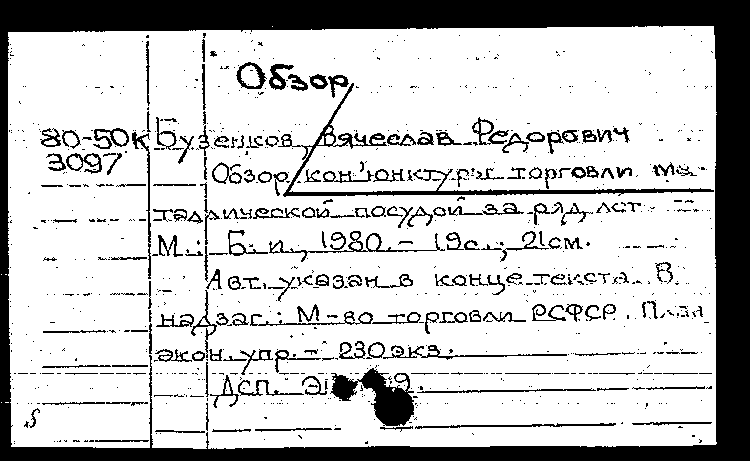 Обзор
80-50к Бузенков, Вячеслав Федорович
3097 Обзор кон'юнктуры торговли ме-
таллической посудой за ряд лет.
М.: Б. и., 1980. - 19с.; 21см.
Авт. указан в конце текста. В
надзаг.: М-во торговли РСФСР. План.
экон. упр. - 230 экз.
Дсп.